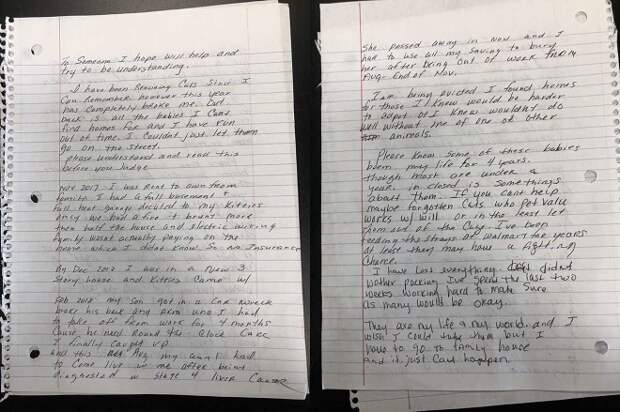 To Someone I hope will help and
try to be understanding.
I have been Rescuing Cats Since I
Can Remember however this year
has completely broke me. Out
back is all the babies I Cant
find homes for and I have run
out of time. I Couldnt just let them
go on the street.
please understand and read this
before you Judge
Nov 2017 I was Rent to own from
family I had a full basement &
full heat going decided to my kittens
only. We had a fire it burnt more
then half the house and electric wiring
family wasnt actually paying on the
home which I didnt know. So no Insurance
By Dec 2017 I was in a new 3
Story house and kitties Came w/
Feb 2018 my Son got in a Car wreck
broke his back and arm and I had
to take off from work for 4 months
Cause he need Round the Clock Care
I finally caught up
and this Aug my aunt had
to Come live w me after being
diagnosed w Stage 4 liver Cancer
She passed away in Nov and I
had to use all my saving to bury
her after being out of work from
Aug- End of Nov.
I am being evicted I found homes
for those I knew would be harder
to adopt or I knew wouldnt do
well without me or one of other
animals.
Please know some of these babies
been my life for 4 years.
though most are under a
year. in closed is somethings
about them. If you cant help
maybe forgotten Cats who Pet Value
works w/ will or in the least let
them out of the Cage I've been
feeding the strays at walmart for years
at least they may have a fighting
Chance.
I have lost everything. didnt
bother packing I've spent the last two
weeks working hard to make Sure
as many would be okay.
They are my life & my world. and I
wish I could take them but I
have to go to family house
and it just Cant happen.